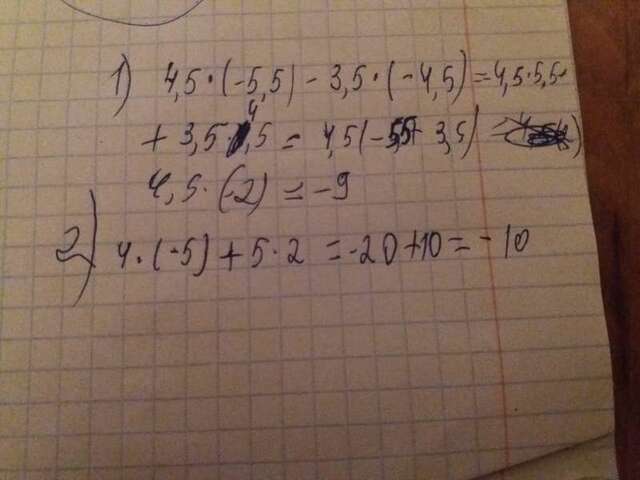 1) 4,5·(-5,5) - 3,5·(-4,5) = 4,5·5,5+
+ 3,5·4,5 = 4,5(-5,5+3,5) =
4,5·(-2) = -9
2) 4·(-5) + 5·2 = -20+10 = -10